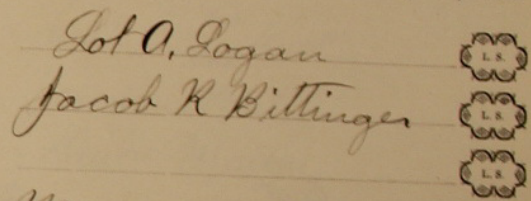 Lot A. Logan L. S.
Jacob R Bittinger L. S.
L. S.